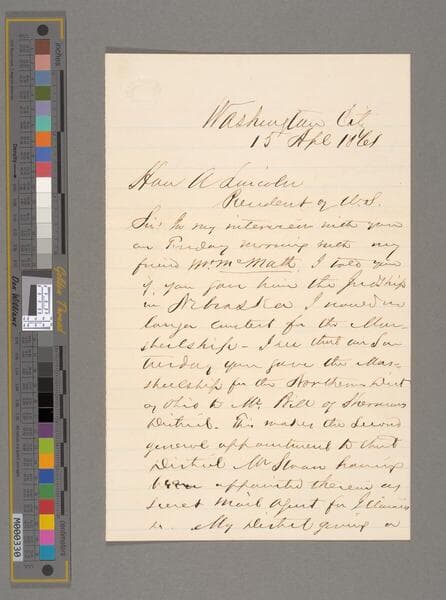 Washington City
15 Apl 1861
Hon A Lincoln
President of U.S.
Sir: In my interview with you
on Friday morning with my
friend Mr. McMath I told you
if you gave him the Judgship
in Nebraska I would no
longer contest for the Mar-
shellship - I see that on Sa-
turday you gave the Mar-
shellship for the Northern Dist
of Ohio to Mr. Bill of Shermans
District. This makes the second
general appointment to that
District Mr Sloan having
been appointed therein as
secret Mail Agent for Illinois
&c. My District giving a
inches
centimeters
Golden Thread
Don Williams
M000330